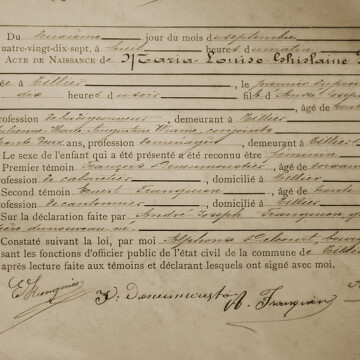 Du deuxième jour du mois de septembre
uatre-vingt-dix-sept, à huit heures du matin
ACTE DE NAISSANCE de Maria Louise Ghislaine
ée à Tillier, le premier du
dix heures du soir fille d'André Joseph
, âgé de
profession de badigeonneur, demeurant à Tillier
Marie Augustine conjointe
trente deux ans, profession de ménagère, demeurant à Tillier
Le sexe de l'enfant qui a été présenté a été reconnu être féminin
Premier témoin François Deneumoustier, âgé de soixante
rofession de, domicilié à Tillier
Second témoin Ernest Franquien, âgé de trente
rofession de cantonnier, domicilié à Tillier
Sur la déclaration faite par André Joseph Franquien
ère du nouveau né.
Constaté suivant la loi, par moi Alphonse Delcourt,
sant les fonctions d'officier public de l'état civil de la commune de Tillier
après lecture faite aux témoins et déclarant lesquels ont signé avec moi.
E Franquien
F. Deneumoustier A. Franquien